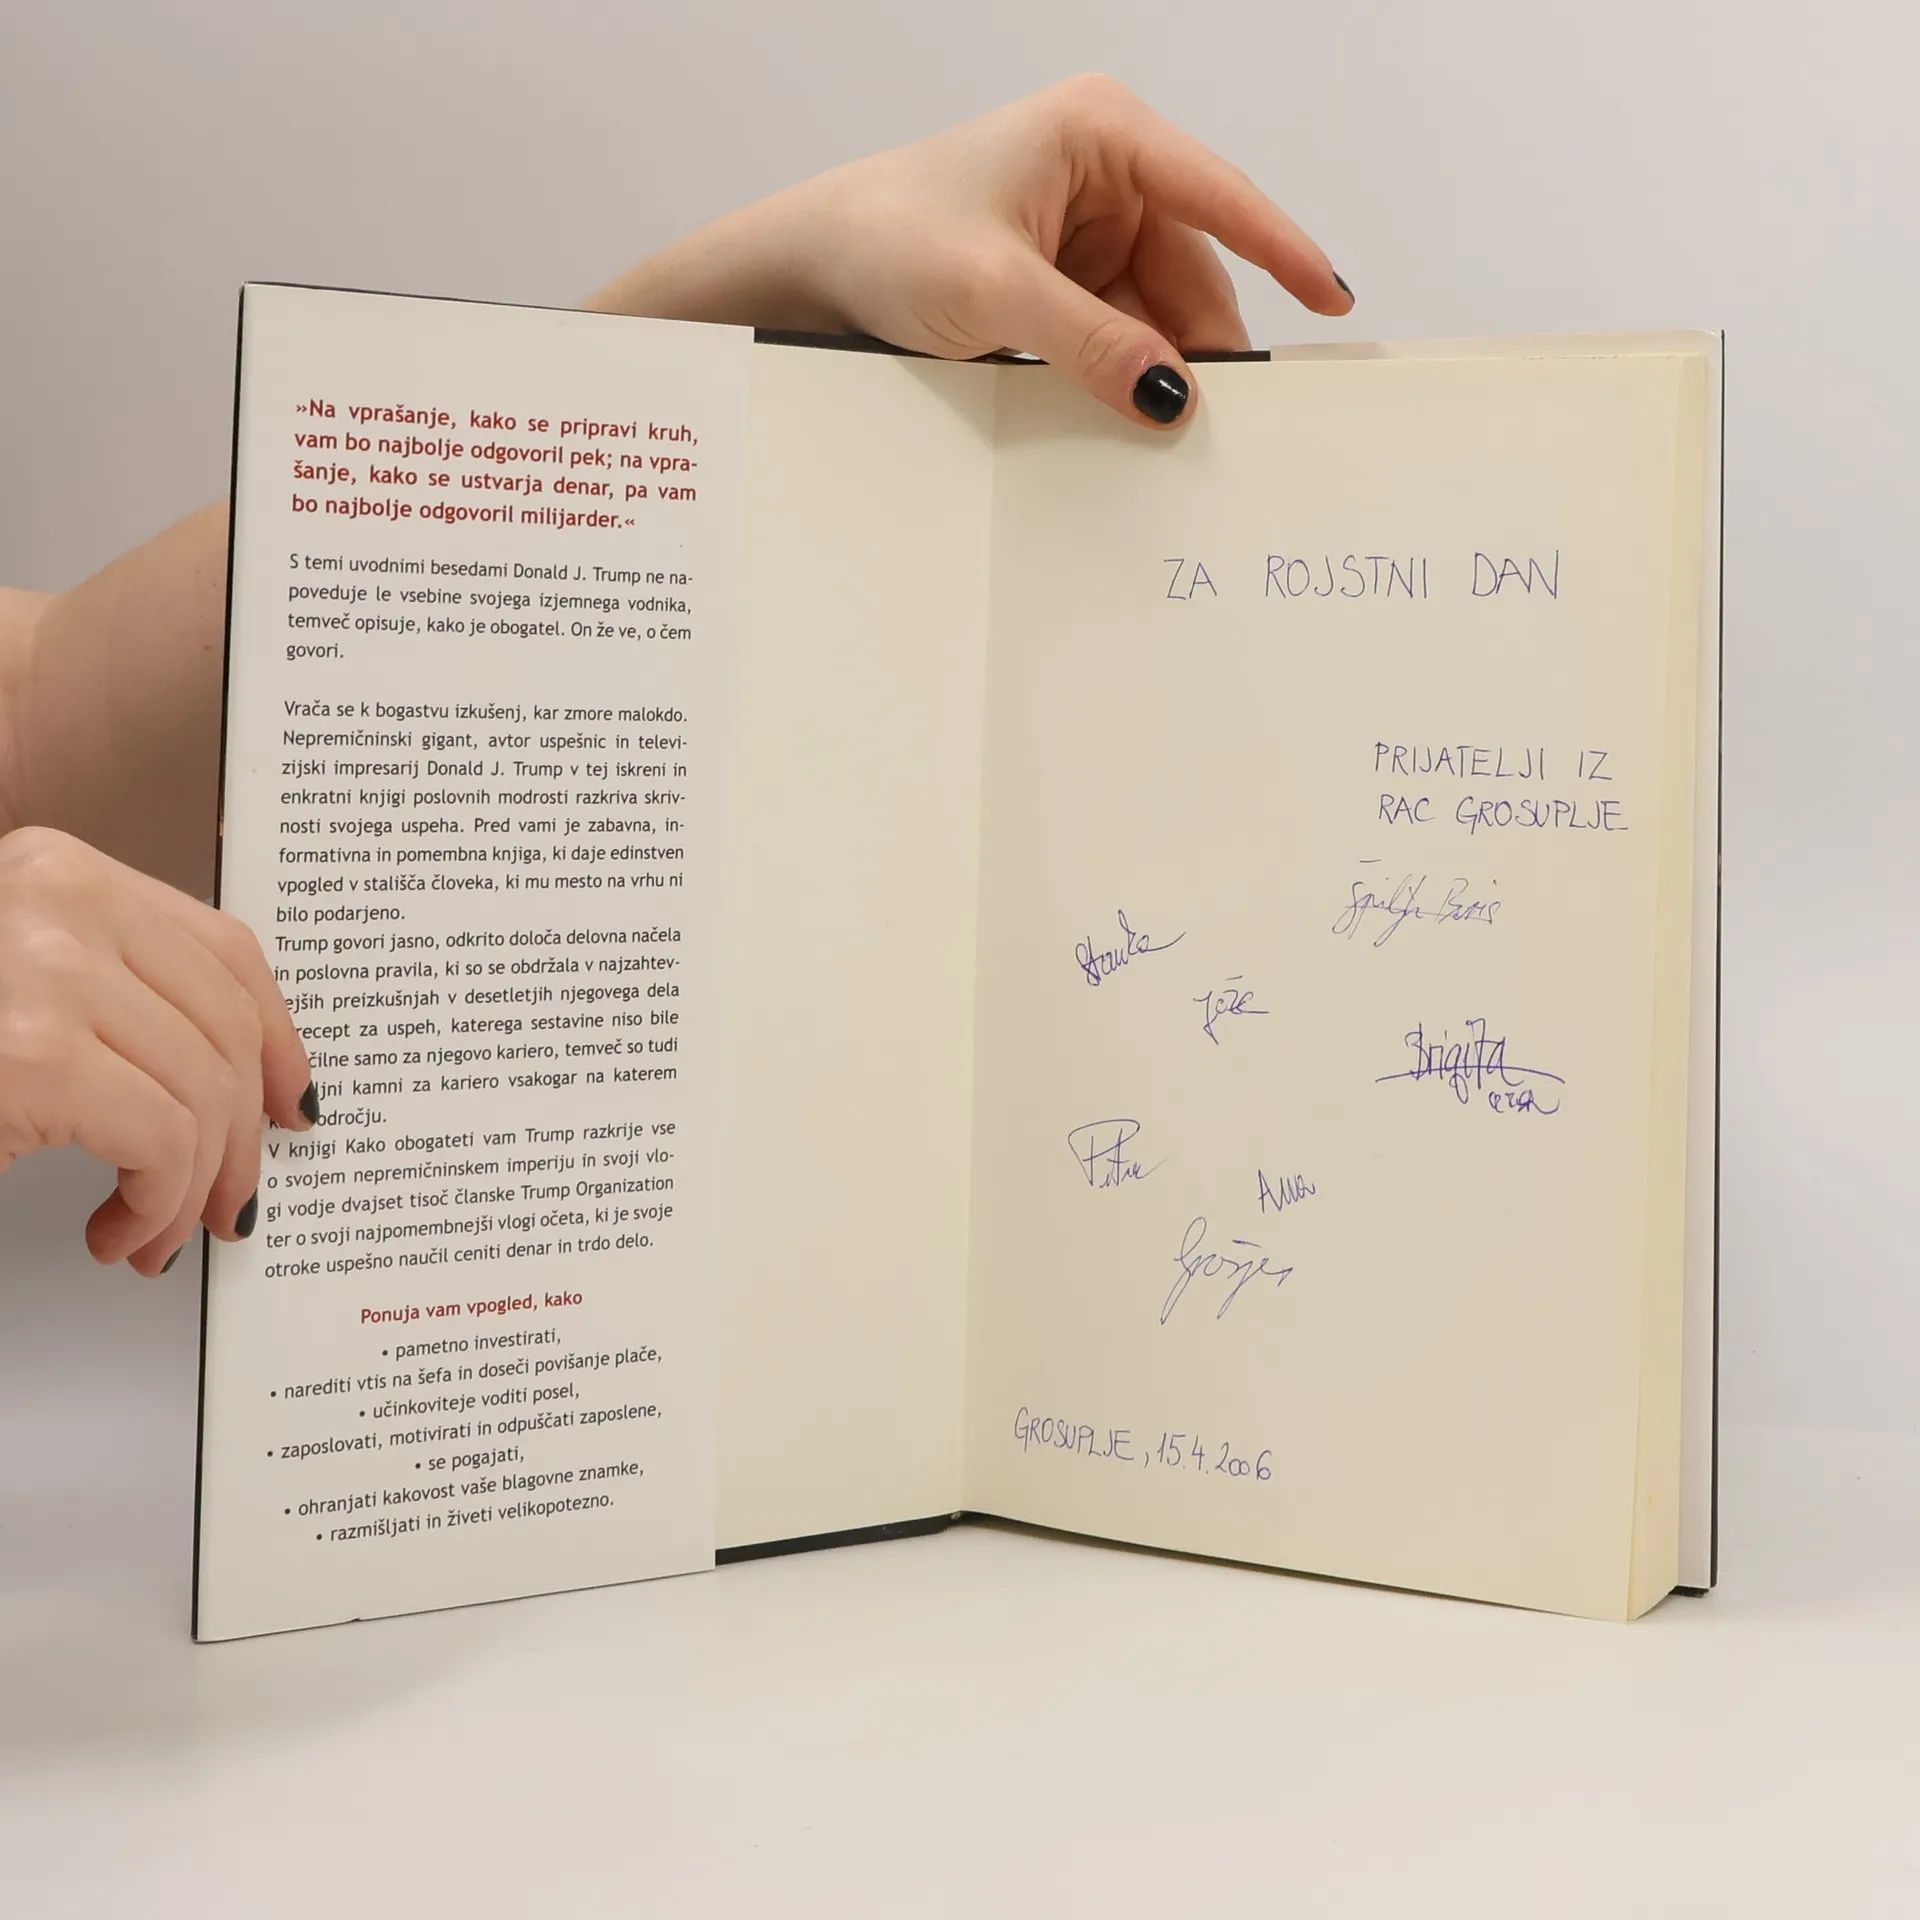 »Na vprašanje, kako se pripravi kruh,
vam bo najbolje odgovoril pek; na vpra-
šanje, kako se ustvarja denar, pa vam
bo najbolje odgovoril milijarder.«
S temi uvodnimi besedami Donald J. Trump ne na-
poveduje le vsebine svojega izjemnega vodnika,
temveč opisuje, kako je obogatel. On že ve, o čem
govori.
Vrača se k bogastvu izkušenj, kar zmore malokdo.
Nepremičninski gigant, avtor uspešnic in televi-
zijski impresarij Donald J. Trump v tej iskreni in
enkratni knjigi poslovnih modrosti razkriva skriv-
nosti svojega uspeha. Pred vami je zabavna, in-
formativna in pomembna knjiga, ki daje edinstven
vpogled v stališča človeka, ki mu mesto na vrhu ni
bilo podarjeno.
Trump govori jasno, odkrito določa delovna načela
in poslovna pravila, ki so se obdržala v najzahtev-
ejših preizkušnjah v desetletjih njegovega dela
recept za uspeh, katerega sestavine niso bile
čilne samo za njegovo kariero, temveč so tudi
ljni kamni za kariero vsakogar na katerem
odročju.
V knjigi Kako obogateti vam Trump razkrije vse
o svojem nepremičninskem imperiju in svoji vlo-
gi vodje dvajset tisoč članske Trump Organization
ter o svoji najpomembnejši vlogi očeta, ki je svoje
otroke uspešno naučil ceniti denar in trdo delo.
Ponuja vam vpogled, kako
• pametno investirati,
• narediti vtis na šefa in doseči povišanje plače,
• učinkoviteje voditi posel,
• zaposlovati, motivirati in odpuščati zaposlene,
• se pogajati,
• ohranjati kakovost vaše blagovne znamke,
• razmišljati in živeti velikopotezno.
ZA ROJSTNI DAN
PRIJATELJI IZ
RAC GROSUPLJE
Boris
Stanka
Jože
Brigita
Ana
GROSUPLJE, 15.4.2006